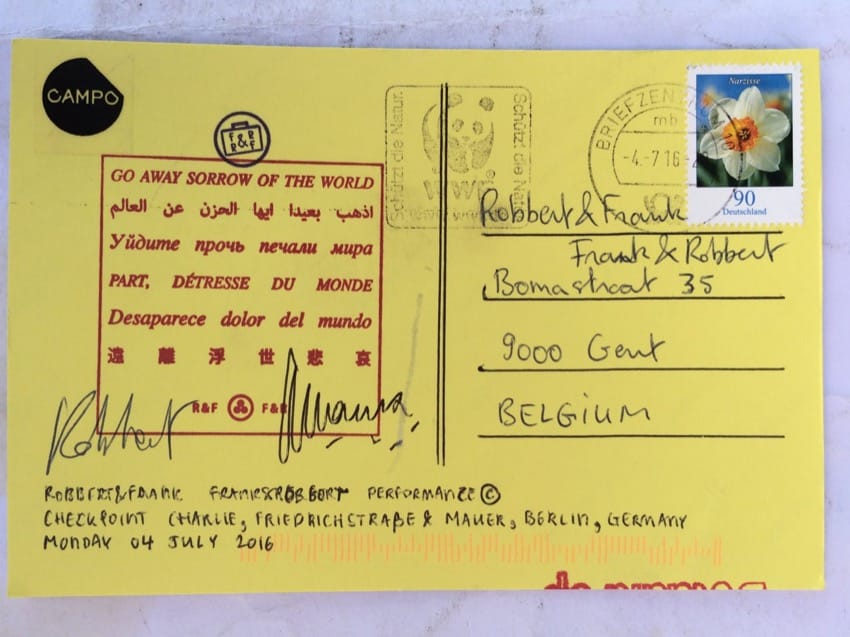 CAMPO
F&R
R&F
GO AWAY SORROW OF THE WORLD
اذهب بعيدا ايها الحزن عن العالم
Уйдите прочь печали мира
PART, DÉTRESSE DU MONDE
Desaparece dolor del mundo
遠離浮世悲哀
R&F F&R
Robbert
ROBBERT&FRANK FRANK&ROBBERT PERFORMANCE ©
CHECKPOINT CHARLIE, FRIEDRICHSTRAßE & MAUER, BERLIN, GERMANY
MONDAY 04 JULY 2016
Schützt die Natur.
WWF
Schützt die Natur
BRIEFZEN
mb
-4.-7.16-
Narzisse
90
Deutschland
Robbert & Frank
Frank & Robbert
Bomastraat 35
9000 Gent
BELGIUM